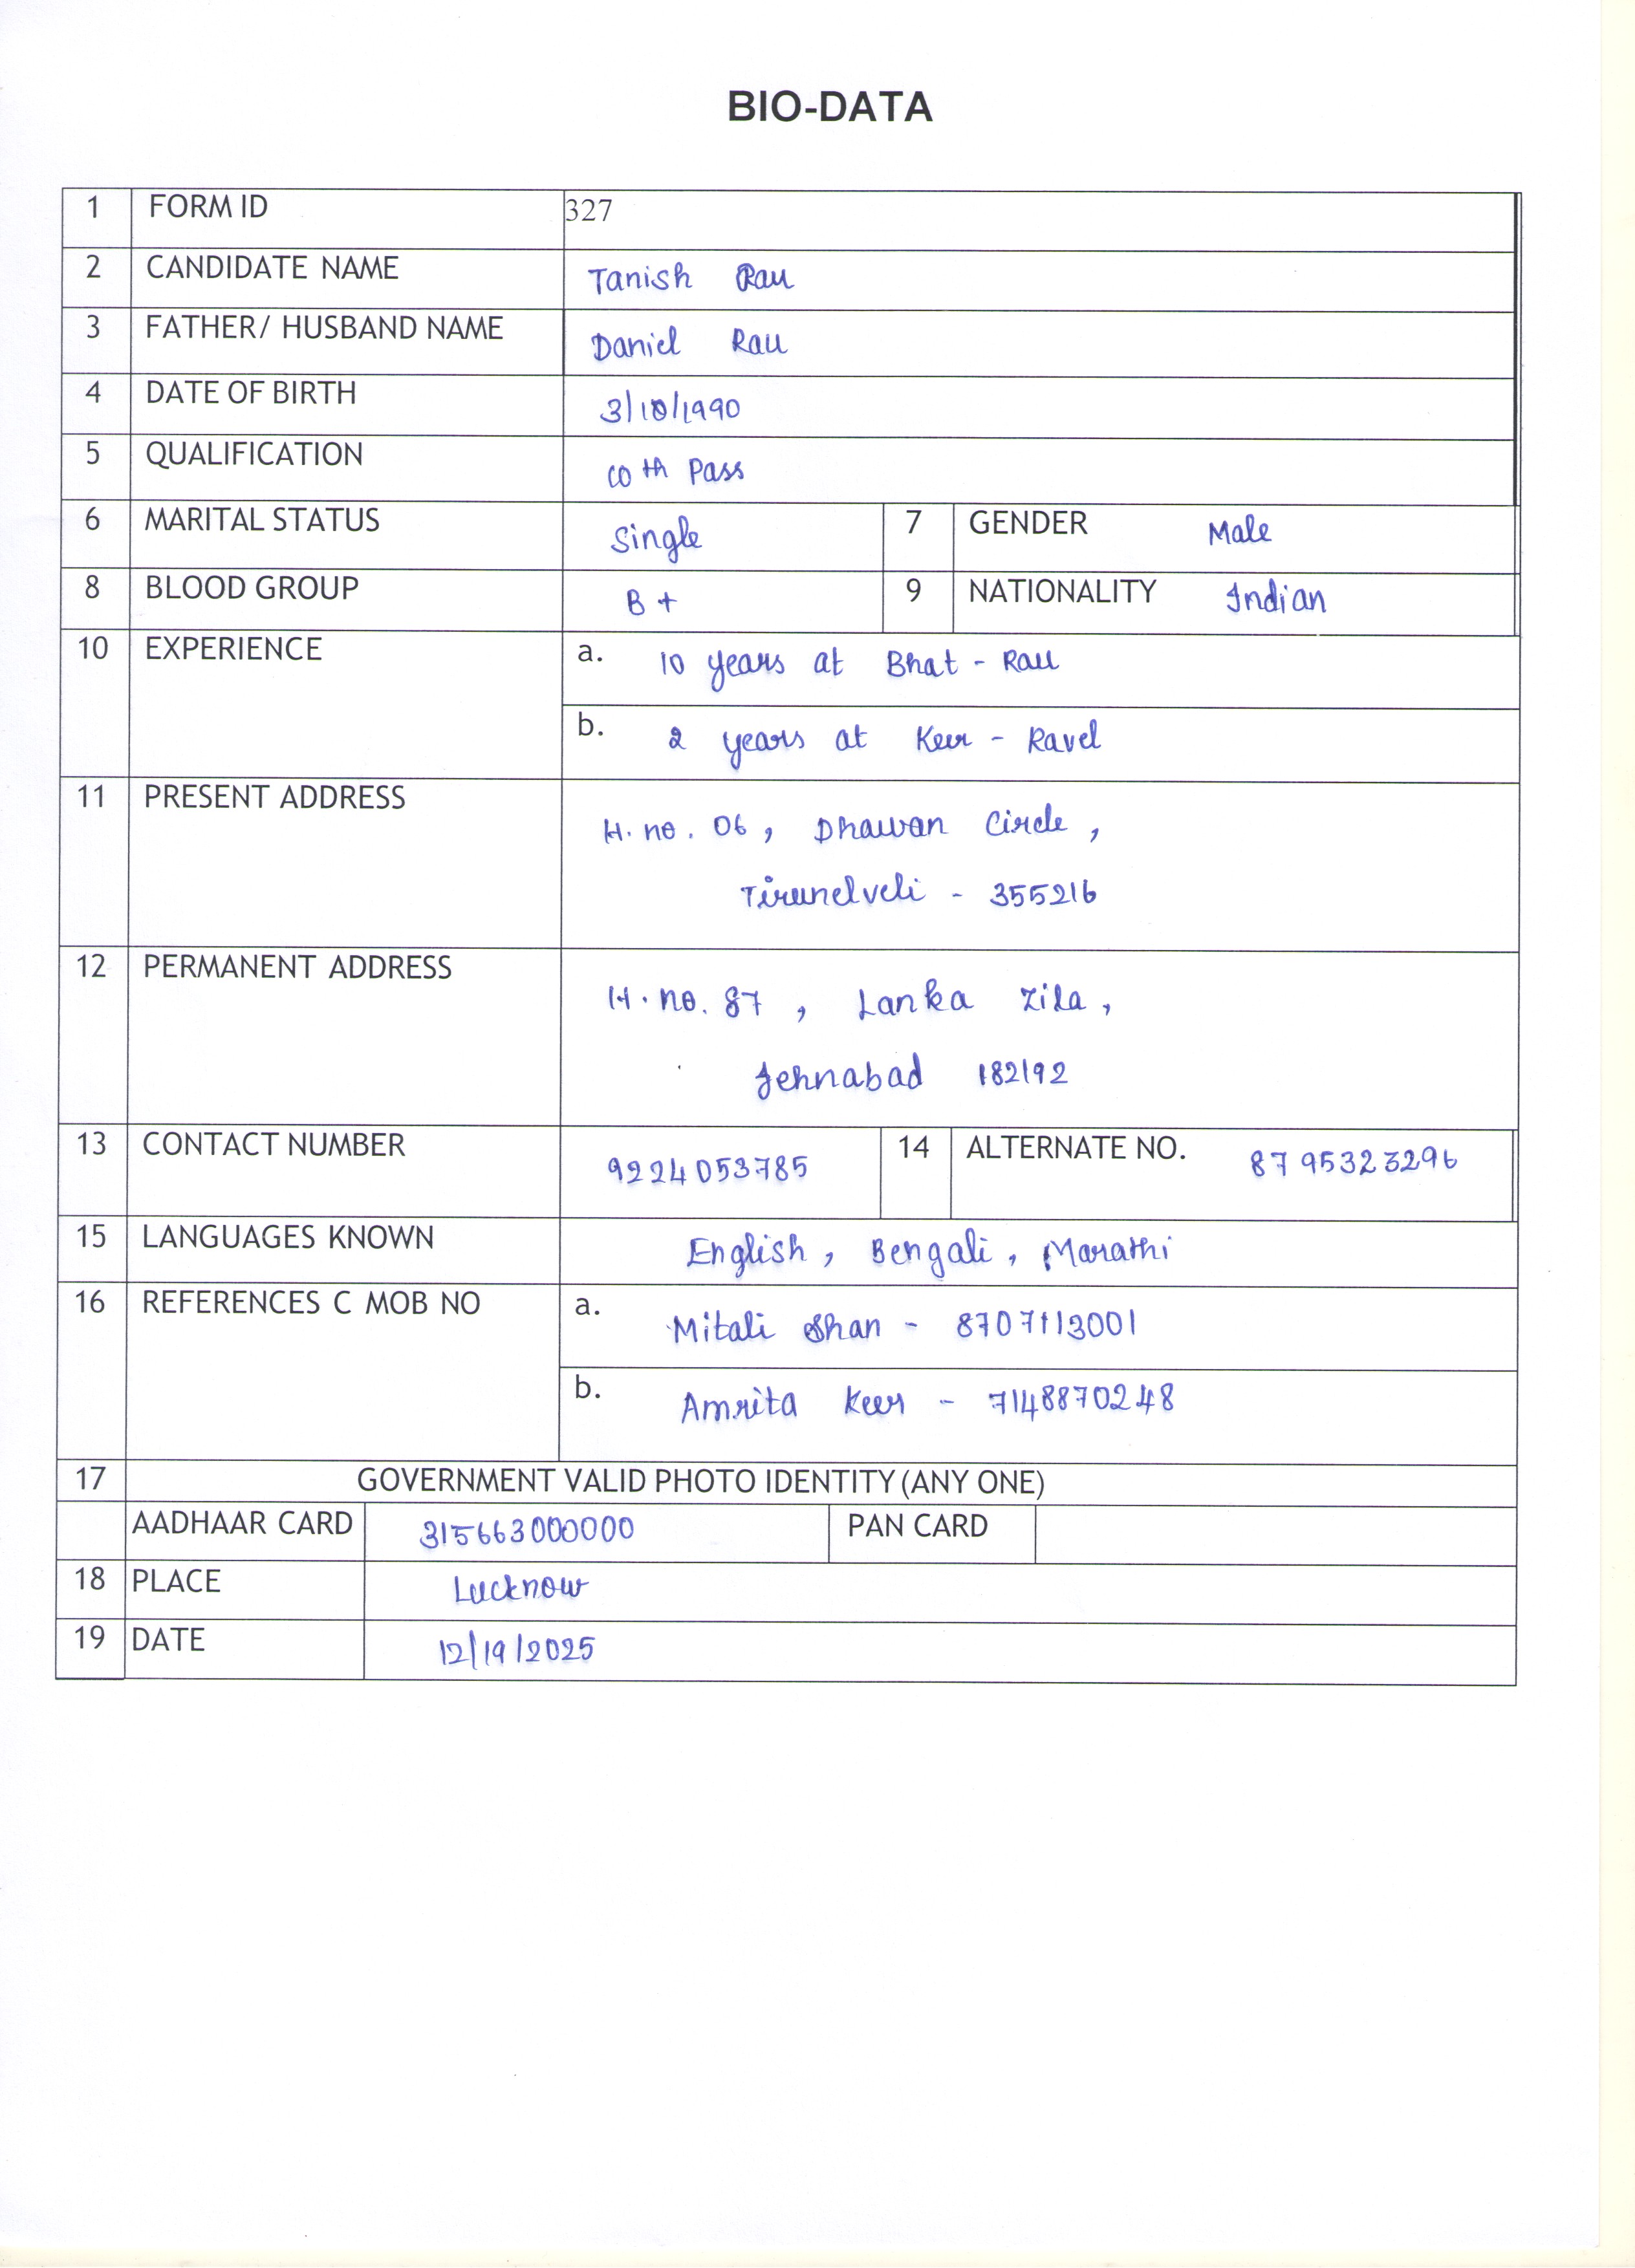 BIO-DATA
1 FORM ID 327
2 CANDIDATE NAME Tanish Rau
3 FATHER/ HUSBAND NAME Daniel Rau
4 DATE OF BIRTH 3/10/1990
5 QUALIFICATION 10th Pass
6 MARITAL STATUS Single 7 GENDER Male
8 BLOOD GROUP B+ 9 NATIONALITY Indian
10 EXPERIENCE a. 10 years at Bhat - Rau
b. 2 years at Keer - Ravel
11 PRESENT ADDRESS
H. no. 06, Dhawan Circle,
Tirunelveli - 355216
12 PERMANENT ADDRESS
H. no. 87, Lanka Zila,
Jehnabad 182192
13 CONTACT NUMBER 9224053785 14 ALTERNATE NO. 8795323296
15 LANGUAGES KNOWN English, Bengali, Marathi
16 REFERENCES C MOB NO a. Mitali Shan - 8707113001
b. Amrita Keer - 7148870248
17 GOVERNMENT VALID PHOTO IDENTITY (ANY ONE)
AADHAAR CARD 315663000000 PAN CARD
18 PLACE Lucknow
19 DATE 12/19/2025